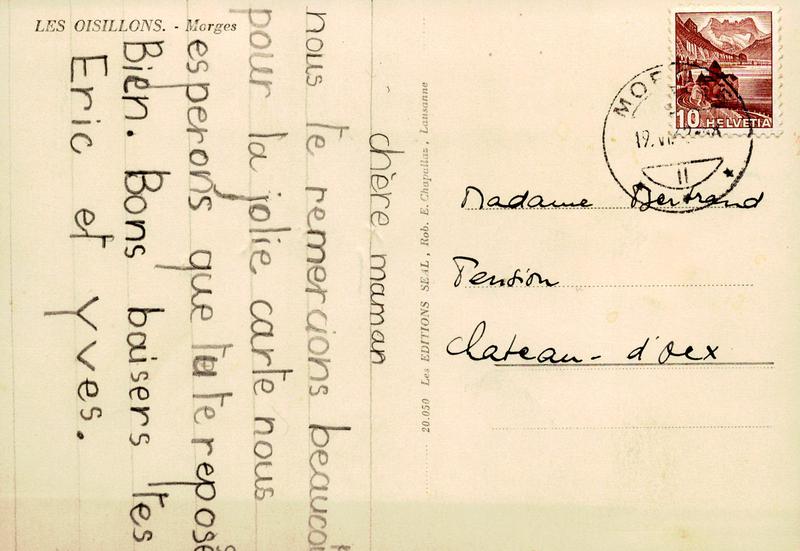 LES OISILLONS. - Morges
chère maman
nous te remercions beaucou
pour la jolie carte nous
esperons que tu te repose
Bien. Bons baisers tes
Eric et Yves.
20.050 Les EDITIONS SEAL, Rob. E. Chapallaz, Lausanne
10 HELVETIA
19. VI
II
Madame Bertrand
Pension
Chateau-d'Oex